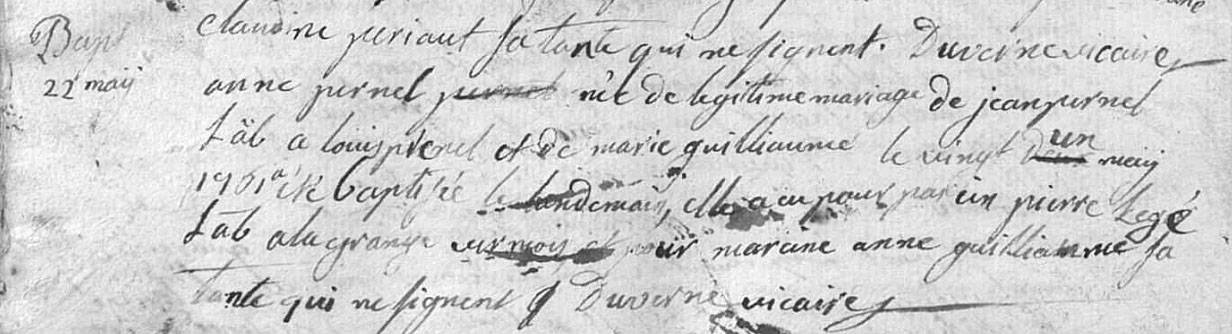 Claudine periaut sa tante qui ne signent. Duverne vicaire
Bapt
22 maÿ
anne pernel pernel née de legitime mariage de jean pernel
Lab a louis prenel et de marie guilliaume le vingt un maÿ
1701 a été baptisée le landemain, elle a eu pour parein pierre Legé
Lab a la grange et pour maraine anne guilliaume sa
tante qui ne signent Duverne vicaire